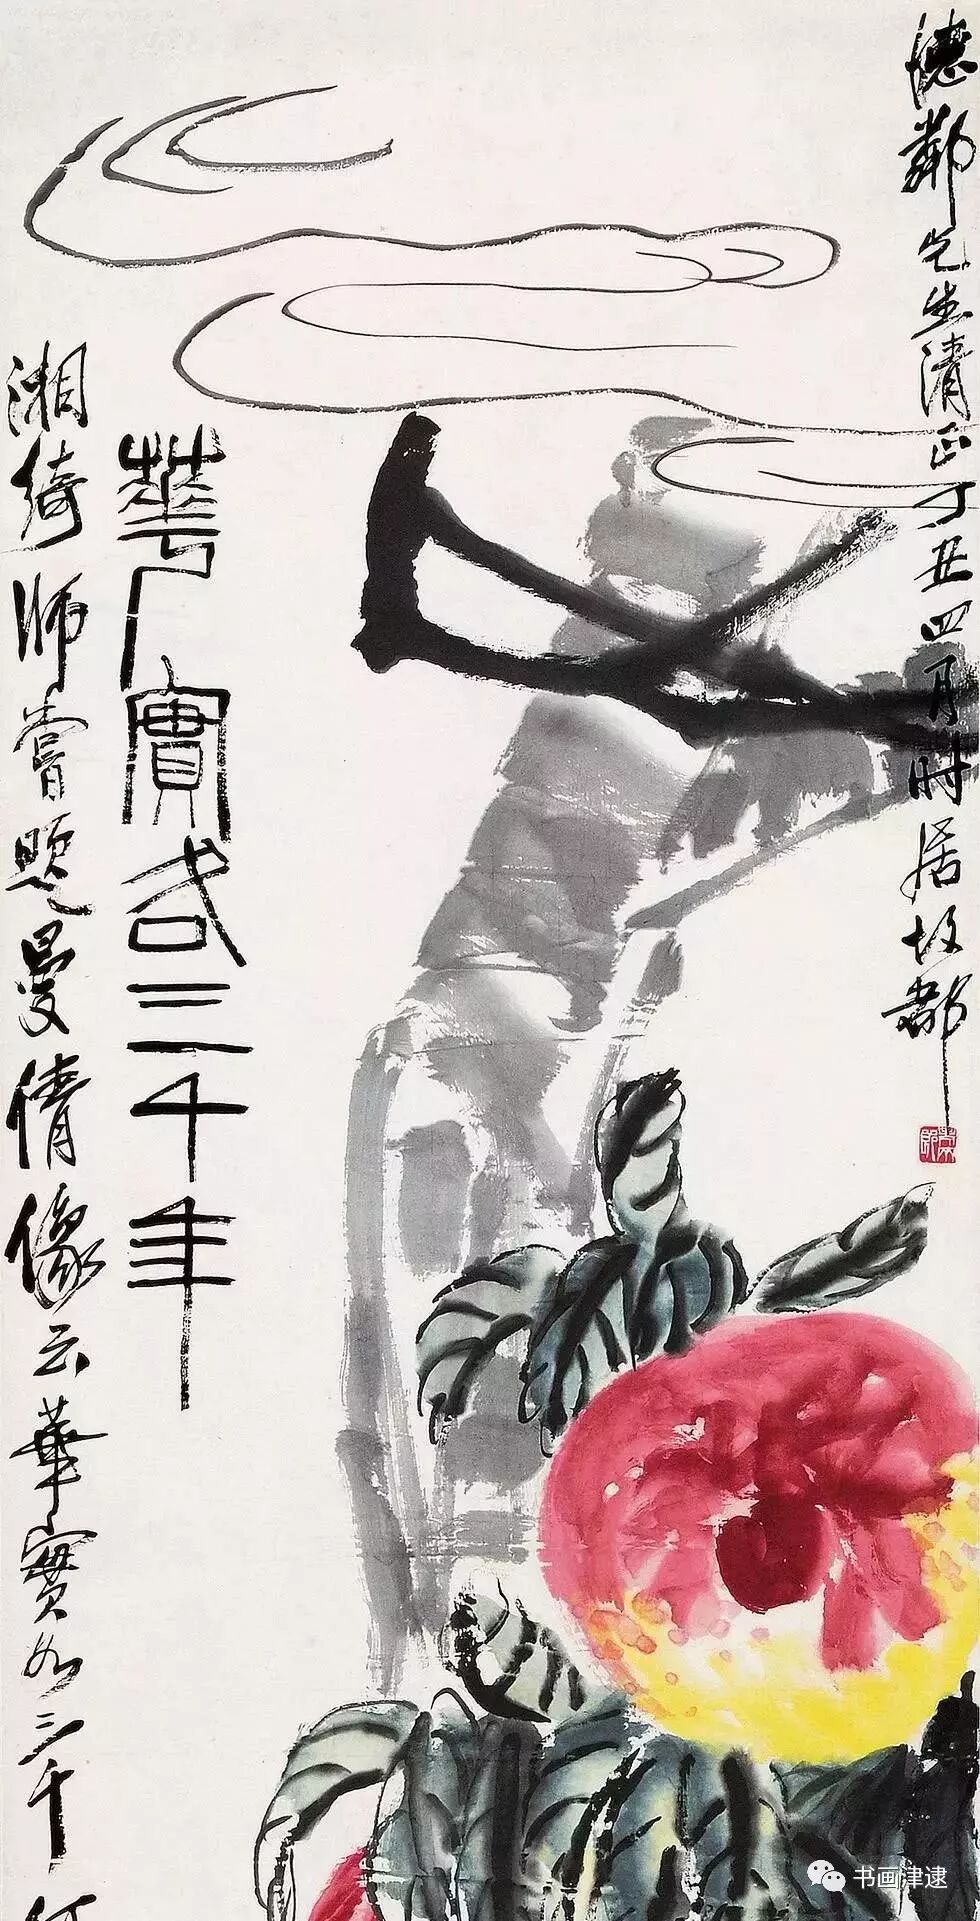 德鄰先生清正丁丑四月时居故都
華實各三千年
湘綺師嘗題曼倩像云華實各三千
书画津逮